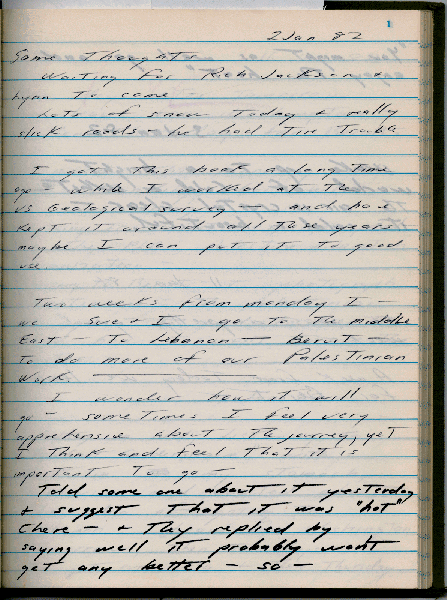 1
2 Jan 82
Some Thoughts
Waiting for Rich Jackson &
Lynn To come —
Lots of snow Today & really
slick roads — he had Tire Trouble
I got This book a long Time
ago — while I worked at The
US Geological survey — and have
kept it around all These years
maybe I can put it To good
use.
Two weeks from monday I —
we Sue & I go To The middle
East — To Lebanon — Beruit —
To do more of our Palestinian
work.
I wonder how it will
go — some Times I feel very
apprehensive about The journey, yet
I Think and feel That it is
important To go —
Told some one about it yesterday
& suggest That it was "hot"
There — & They replied by
saying well it probably won't
get any better — so —